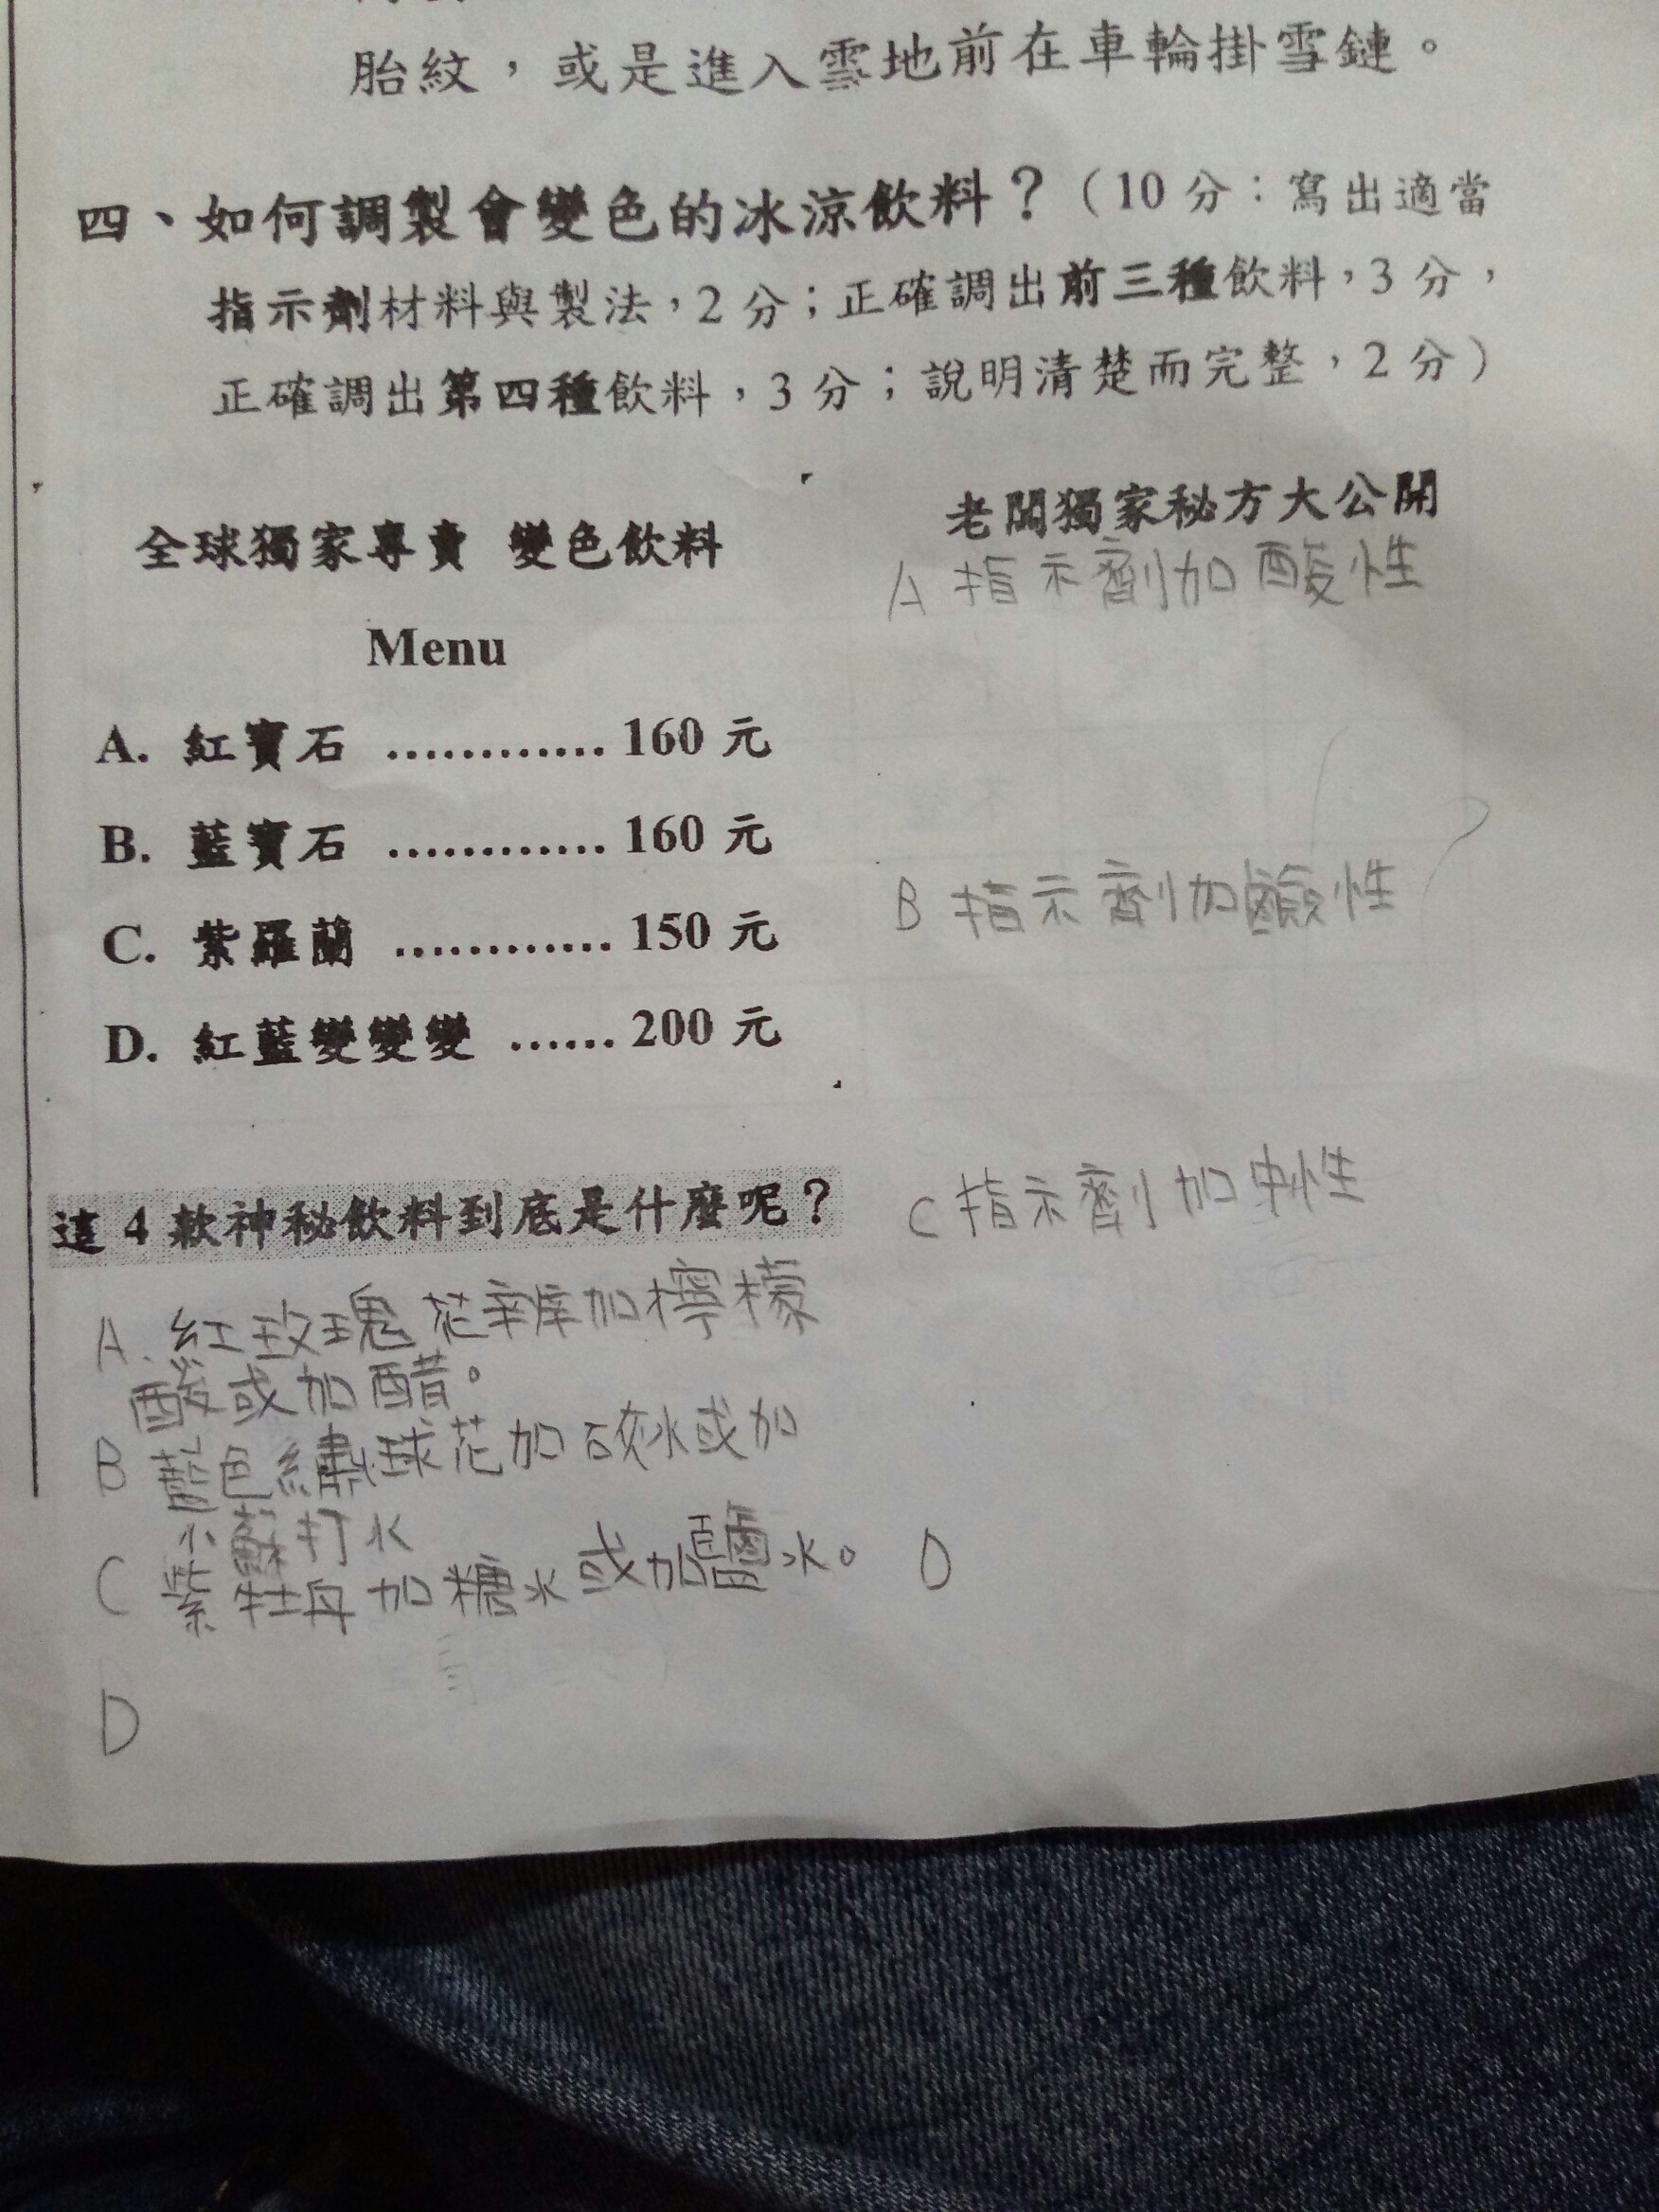 胎紋，或是進入雲地前在車輪掛雪鏈。
四、如何調製會變色的冰涼飲料？（10 分：寫出適當
指示劑材料與製法，2 分；正確調出前三種飲料，3 分，
正確調出第四種飲料，3 分；說明清楚而完整，2 分）
全球獨家專賣 變色飲料
Menu
A. 紅寶石 ............ 160 元
B. 藍寶石 ............ 160 元
C. 紫羅蘭 ............ 150 元
D. 紅藍變變變 ...... 200 元
這 4 款神秘飲料到底是什麼呢？
A. 紅玫瑰花辦加檸檬
酸或加醋。
B 藍色繡球花加碳水或加
小蘇打水
C 紫牡丹加糖水或加鹽水。
D
老闆獨家秘方大公開
A 指示劑加酸性
B 指示劑加鹼性
C 指示劑加中性
D